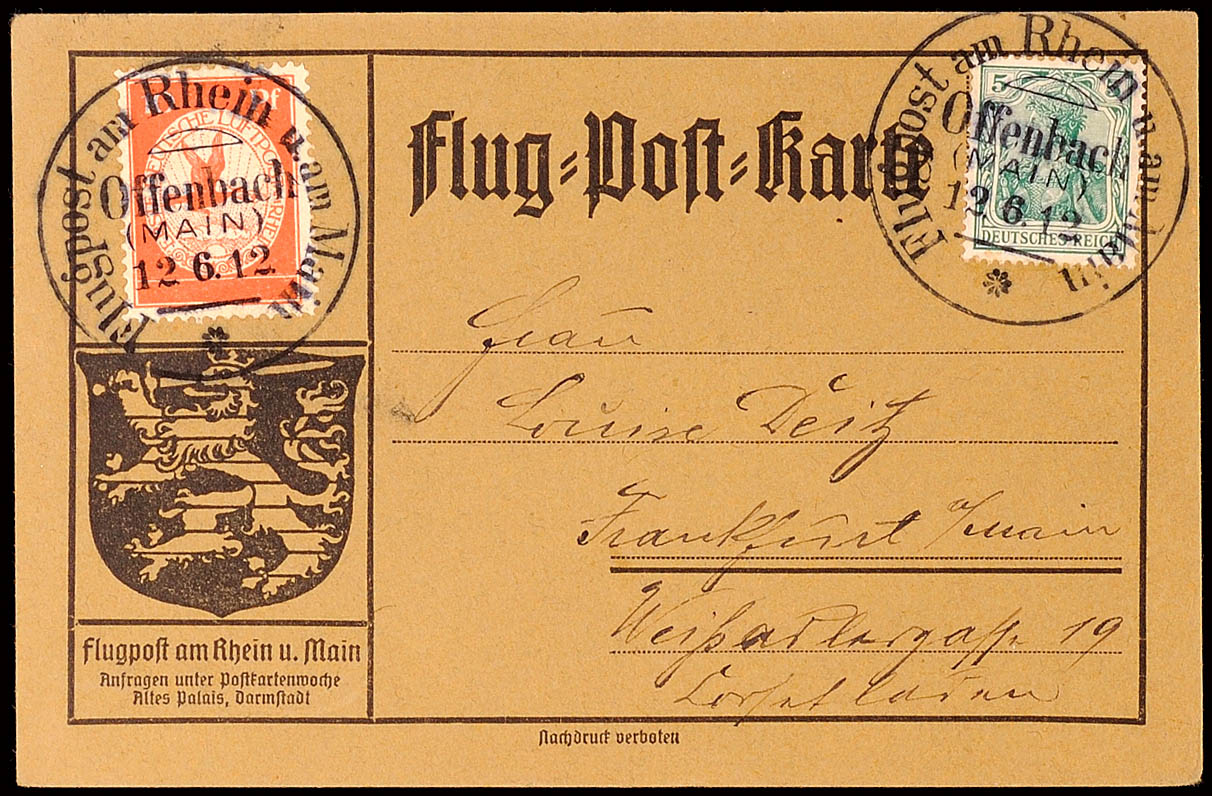 Flug=Post=Karte
Flugpost am Rhein u. am Main
Offenbach
(MAIN)
12 6.12
Pf
DEUTSCHE LUFTPOST
Flugpost am Rhein u. am Main
Offenbach
(MAIN)
12 6.12
5
DEUTSCHES REICH
Frau
Louise Deitz
Frankfurt /Main
Weißadlergasse 19
Corsetladen
Flugpost am Rhein u. Main
Anfragen unter Postkartenwoche
Altes Palais, Darmstadt
Nachdruck verboten